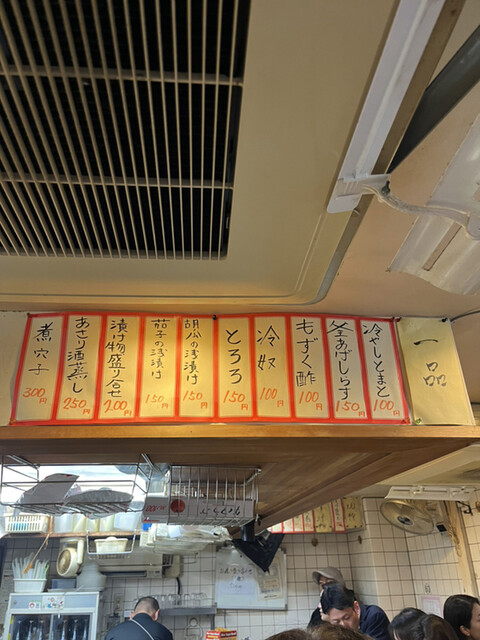 一品
冷やしとまと
100円
釜あげしらす
150円
もずく酢
100円
冷奴
100円
とろろ
150円
胡瓜の浅漬け
150円
茄子の浅漬け
150円
漬け物盛り合せ
200円
あさり酒蒸し
250円
煮穴子
300円